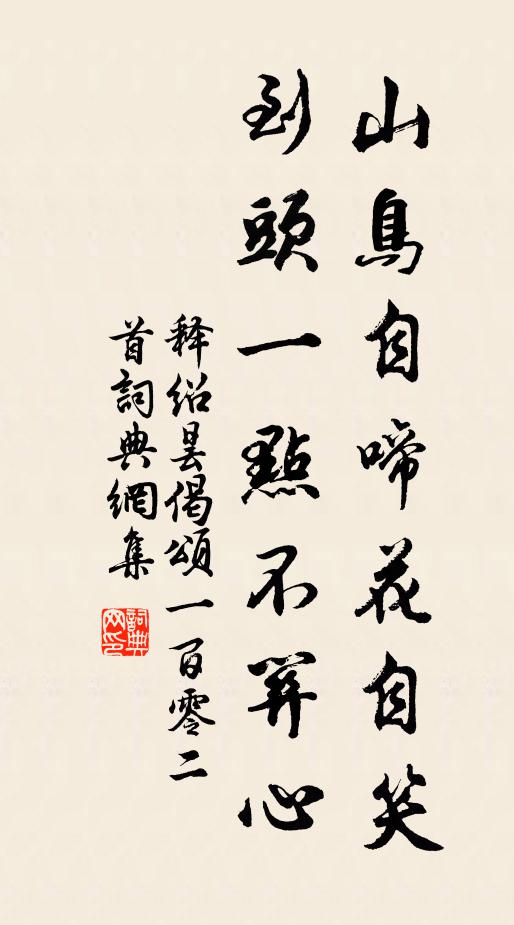 山鳥自啼花自笑
到頭一點不筭心
释绍昙偈頌一百零二
首詞典網集
詞典
网印